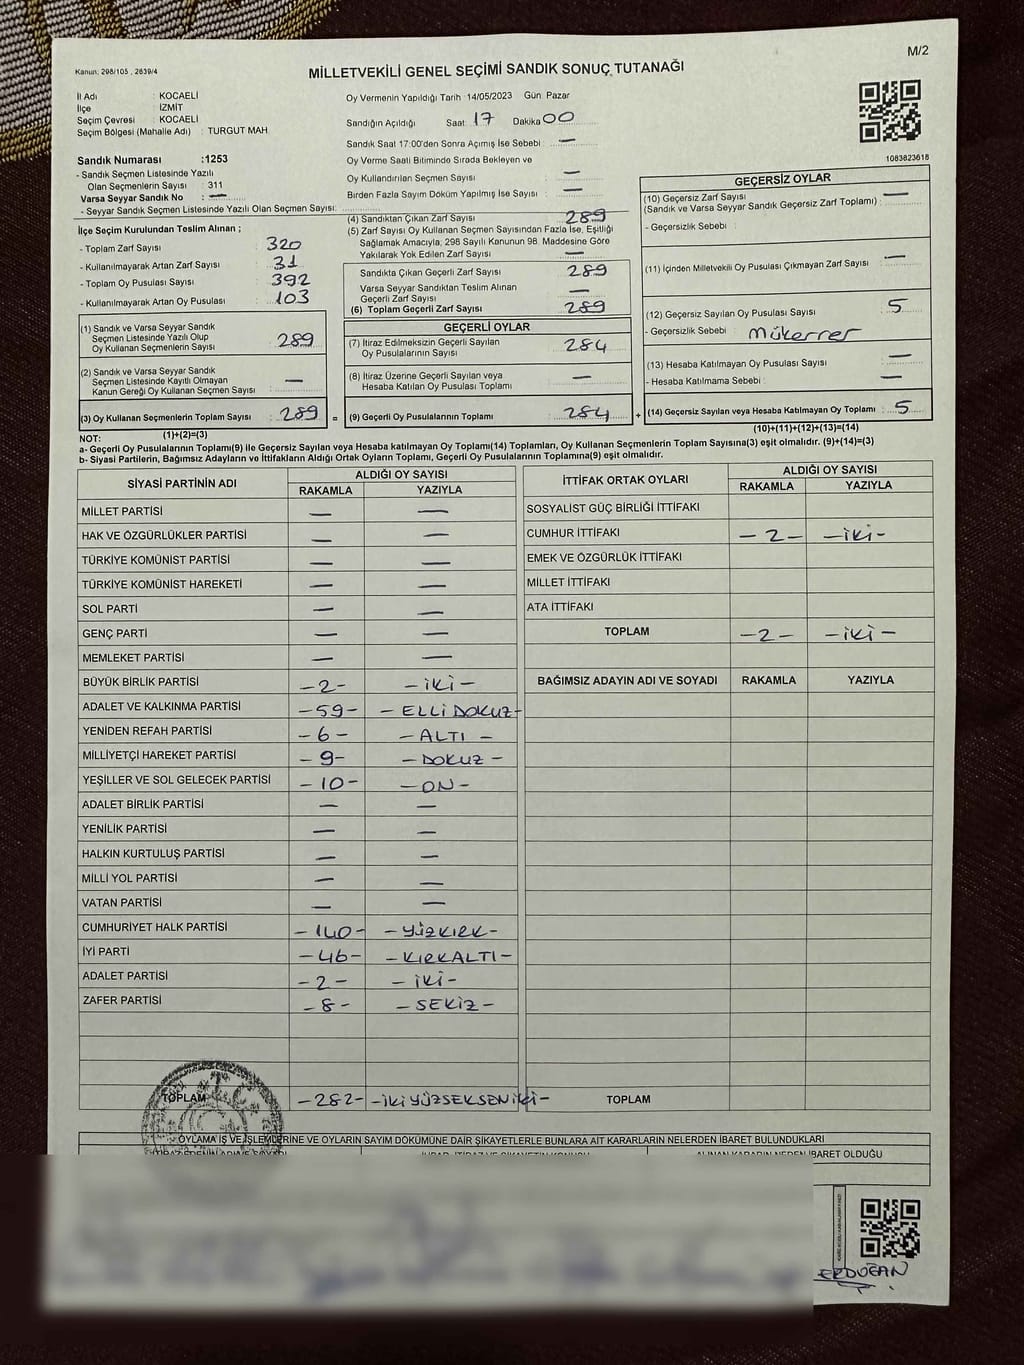 M/2
Kanun: 298/105 , 2839/4
MİLLETVEKİLİ GENEL SEÇİMİ SANDIK SONUÇ TUTANAĞI
İl Adı : KOCAELİ
İlçe : İZMİT
Seçim Çevresi : KOCAELİ
Seçim Bölgesi (Mahalle Adı) : TURGUT MAH
Sandık Numarası :1253
- Sandık Seçmen Listesinde Yazılı
Olan Seçmenlerin Sayısı : 311
Varsa Seyyar Sandık No : —
- Seyyar Sandık Seçmen Listesinde Yazılı Olan Seçmen Sayısı:
Oy Vermenin Yapıldığı Tarih :14/05/2023 Gün: Pazar
Sandığın Açıldığı Saat: 17 Dakika 00
Sandık Saat 17:00'den Sonra Açımış İse Sebebi : —
Oy Verme Saati Bitiminde Sırada Bekleyen ve
Oy Kullandırılan Seçmen Sayısı : —
Birden Fazla Sayım Döküm Yapılmış İse Sayısı : —
1083823618
İlçe Seçim Kurulundan Teslim Alınan ;
- Toplam Zarf Sayısı : 320
- Kullanılmayarak Artan Zarf Sayısı : 31
- Toplam Oy Pusulası Sayısı : 392
- Kullanılmayarak Artan Oy Pusulası : 103
(1) Sandık ve Varsa Seyyar Sandık
Seçmen Listesinde Yazılı Olup
Oy Kullanan Seçmenlerin Sayısı : 289
(2) Sandık ve Varsa Seyyar Sandık
Seçmen Listesinde Kayıtlı Olmayan
Kanun Gereği Oy Kullanan Seçmen Sayısı : —
(3) Oy Kullanan Seçmenlerin Toplam Sayısı : 289 =
(1)+(2)=(3)
(4) Sandıktan Çıkan Zarf Sayısı : 289
(5) Zarf Sayısı Oy Kullanan Seçmen Sayısından Fazla İse, Eşitliği
Sağlamak Amacıyla, 298 Sayılı Kanunun 98. Maddesine Göre
Yakılarak Yok Edilen Zarf Sayısı : —
Sandıkta Çıkan Geçerli Zarf Sayısı : 289
Varsa Seyyar Sandıktan Teslim Alınan
Geçerli Zarf Sayısı : —
(6) Toplam Geçerli Zarf Sayısı : 289
GEÇERLİ OYLAR
(7) İtiraz Edilmeksizin Geçerli Sayılan
Oy Pusulalarının Sayısı : 284
(8) İtiraz Üzerine Geçerli Sayılan veya
Hesaba Katılan Oy Pusulası Toplamı : —
(9) Geçerli Oy Pusulalarının Toplamı : 284 +
GEÇERSİZ OYLAR
(10) Geçersiz Zarf Sayısı : —
(Sandık ve Varsa Seyyar Sandık Geçersiz Zarf Toplamı) :
- Geçersizlik Sebebi :
(11) İçinden Milletvekili Oy Pusulası Çıkmayan Zarf Sayısı : —
(12) Geçersiz Sayılan Oy Pusulası Sayısı : 5
- Geçersizlik Sebebi : Mükerrer
(13) Hesaba Katılmayan Oy Pusulası Sayısı : —
- Hesaba Katılmama Sebebi : —
(14) Geçersiz Sayılan veya Hesaba Katılmayan Oy Toplamı : 5
(10)+(11)+(12)+(13)=(14)
NOT:
a- Geçerli Oy Pusulalarının Toplamı(9) ile Geçersiz Sayılan veya Hesaba katılmayan Oy Toplamı(14) Toplamları, Oy Kullanan Seçmenlerin Toplam Sayısına(3) eşit olmalıdır. (9)+(14)=(3)
b- Siyasi Partilerin, Bağımsız Adayların ve İttifakların Aldığı Ortak Oyların Toplamı, Geçerli Oy Pusulalarının Toplamına(9) eşit olmalıdır.
SİYASİ PARTİNİN ADI ALDIĞI OY SAYISI
RAKAMLA YAZIYLA
MİLLET PARTİSİ — —
HAK VE ÖZGÜRLÜKLER PARTİSİ — —
TÜRKİYE KOMÜNİST PARTİSİ — —
TÜRKİYE KOMÜNİST HAREKETİ — —
SOL PARTİ — —
GENÇ PARTİ — —
MEMLEKET PARTİSİ — —
BÜYÜK BİRLİK PARTİSİ -2- -iKi-
ADALET VE KALKINMA PARTİSİ -59- -ELLİ DOKUZ-
YENİDEN REFAH PARTİSİ -6- -ALTI-
MİLLİYETÇİ HAREKET PARTİSİ -9- -DOKUZ-
YEŞİLLER VE SOL GELECEK PARTİSİ -10- -ON-
ADALET BİRLİK PARTİSİ — —
YENİLİK PARTİSİ — —
HALKIN KURTULUŞ PARTİSİ — —
MİLLİ YOL PARTİSİ — —
VATAN PARTİSİ — —
CUMHURİYET HALK PARTİSİ -140- -YÜZKIRK-
İYİ PARTİ -46- -KIRKALTI-
ADALET PARTİSİ -2- -iKi-
ZAFER PARTİSİ -8- -SEKİZ-
TOPLAM -282- -İKİYÜZSEKSENİKİ-
İTTİFAK ORTAK OYLARI ALDIĞI OY SAYISI
RAKAMLA YAZIYLA
SOSYALİST GÜÇ BİRLİĞİ İTTİFAKI
CUMHUR İTTİFAKI -2- -iKi-
EMEK VE ÖZGÜRLÜK İTTİFAKI
MİLLET İTTİFAKI
ATA İTTİFAKI
TOPLAM -2- -iKi-
BAĞIMSIZ ADAYIN ADI VE SOYADI RAKAMLA YAZIYLA
TOPLAM
T.C.
OYLAMA İŞ VE İŞLEMLERİNE VE OYLARIN SAYIM DÖKÜMÜNE DAİR ŞİKAYETLERLE BUNLARA AİT KARARLARIN NELERDEN İBARET BULUNDUKLARI
ALINAN KARARIN NEDEN İBARET OLDUĞU
ERDOĞAN